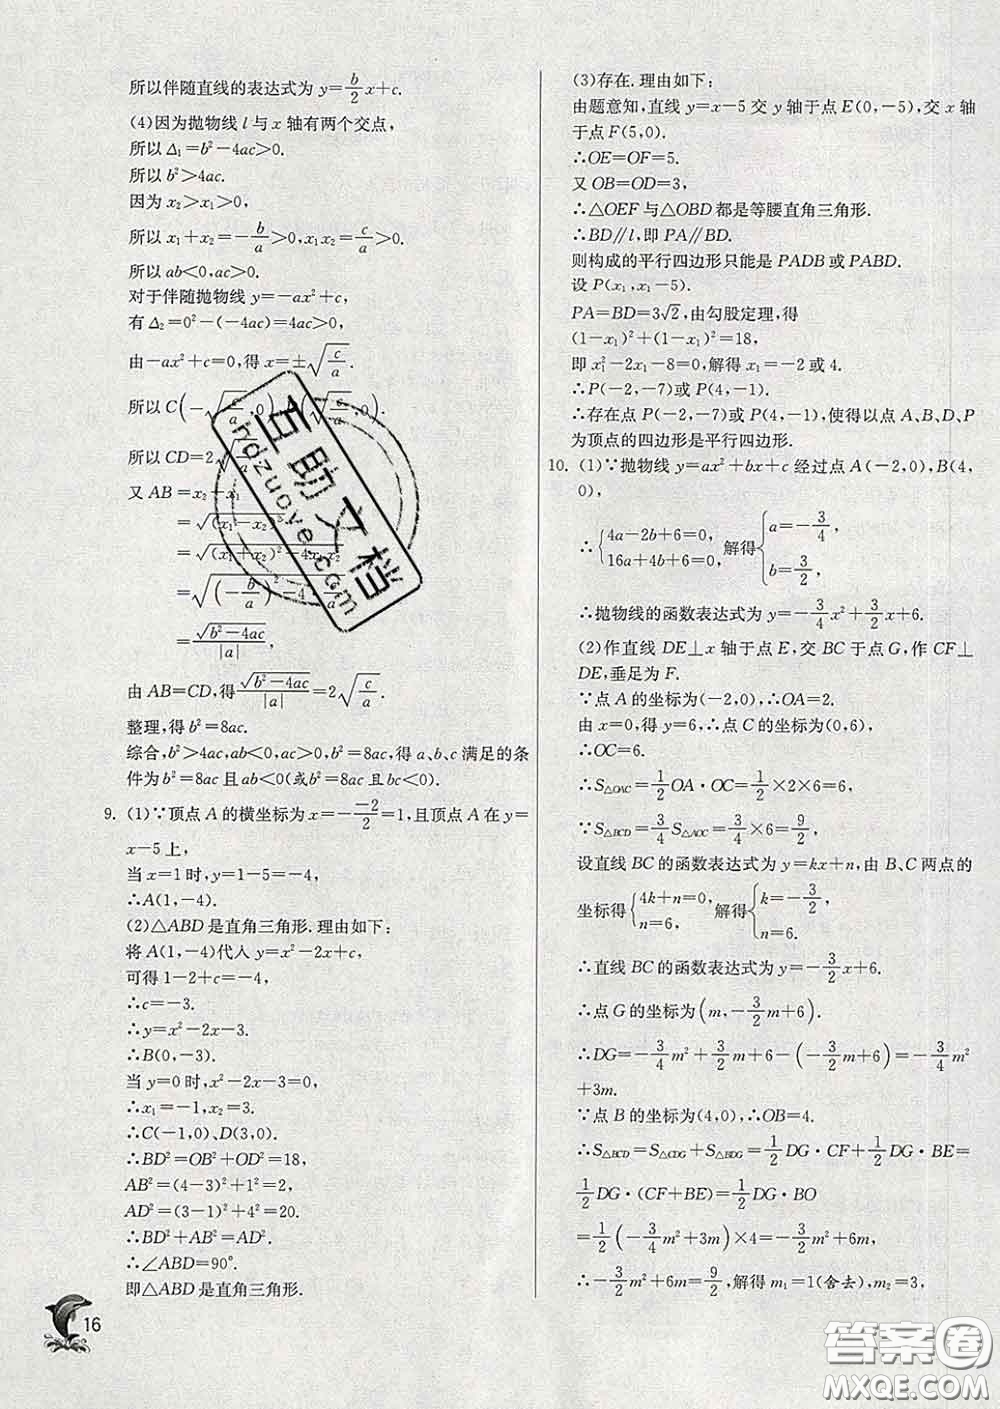 所以伴随直线的表达式为 y=b/2 x+c.
(4)因为抛物线 l 与 x 轴有两个交点,
所以 Δ₁=b²-4ac>0.
所以 b²>4ac.
因为 x₂>x₁>0,
所以 x₁+x₂=-b/a>0,x₁x₂=c/a>0.
所以 ab<0,ac>0.
对于伴随抛物线 y=-ax²+c,
有 Δ₂=0²-(-4ac)=4ac>0,
由-ax²+c=0,得 x=±√(c/a).
所以 C(-√(c/a),0)
所以 CD=2√(c/a).
又 AB=x₂-x₁
=√(x₁-x₂)²
=√((x₁+x₂)²-4x₁x₂)
=√((-b/a)²-4
=√(b²-4ac)/|a|,
由 AB=CD,得√(b²-4ac)/|a|=2√(c/a).
整理,得 b²=8ac.
综合,b²>4ac,ab<0,ac>0,b²=8ac,得 a、b、c 满足的条
件为 b²=8ac 且 ab<0(或 b²=8ac 且 bc<0).
9. (1)∵顶点 A 的横坐标为 x=-(-2)/2=1,且顶点 A 在 y=
x-5 上,
当 x=1 时,y=1-5=-4,
∴A(1,-4).
(2)△ABD 是直角三角形.理由如下:
将 A(1,-4)代入 y=x²-2x+c,
可得 1-2+c=-4,
∴c=-3.
∴y=x²-2x-3.
∴B(0,-3).
当 y=0 时,x²-2x-3=0,
∴x₁=-1,x₂=3.
∴C(-1,0)、D(3,0).
∴BD²=OB²+OD²=18,
AB²=(4-3)²+1²=2,
AD²=(3-1)²+4²=20.
∴BD²+AB²=AD².
∴∠ABD=90°.
即△ABD 是直角三角形.
16
(3)存在.理由如下:
由题意知,直线 y=x-5 交 y 轴于点 E(0,-5),交 x
轴于点 F(5,0).
∴OE=OF=5.
又 OB=OD=3,
∴△OEF 与△OBD 都是等腰直角三角形.
∴BD∥l,即 PA∥BD.
则构成的平行四边形只能是 PADB 或 PABD.
设 P(x₁,x₁-5).
PA=BD=3√2,由勾股定理,得
(1-x₁)²+(1-x₁)²=18,
即 x₁²-2x₁-8=0,解得 x₁=-2 或 4.
∴P(-2,-7)或 P(4,-1).
∴存在点 P(-2,-7)或 P(4,-1),使得以点 A、B、D、P
为顶点的四边形是平行四边形.
10. (1)∵抛物线 y=ax²+bx+c 经过点 A(-2,0),B(4,
0),
∴{4a-2b+6=0, 16a+4b+6=0, 解得{a=-3/4, b=3/2,
∴抛物线的函数表达式为 y=-3/4 x²+3/2 x+6.
(2)作直线 DE⊥x 轴于点 E,交 BC 于点 G,作 CF⊥
DE,垂足为 F.
∵点 A 的坐标为(-2,0),∴OA=2.
由 x=0,得 y=6,∴点 C 的坐标为(0,6),
∴OC=6.
∴S△OAC=1/2 OA·OC=1/2×2×6=6,
∵S△BCD=3/4 S△AOC=3/4×6=9/2,
设直线 BC 的函数表达式为 y=kx+n,由 B、C 两点的
坐标得{4k+n=0, n=6. 解得{k=-3/2, n=6.
∴直线 BC 的函数表达式为 y=-3/2 x+6.
∴点 G 的坐标为(m,-3/2 m+6).
∴DG=-3/4 m²+3/2 m+6-(-3/2 m+6)=-3/4 m²
+3m.
∵点 B 的坐标为(4,0),∴OB=4.
∴S△BCD=S△CDG+S△BDG=1/2 DG·CF+1/2 DG·BE=
1/2 DG·(CF+BE)=1/2 DG·BO
=1/2(-3/4 m²+3m)×4=-3/2 m²+6m,
∴-3/2 m²+6m=9/2,解得 m₁=1(舍去),m₂=3,
互助文档
hydzuoye.com
答案圈
MXQE.COM